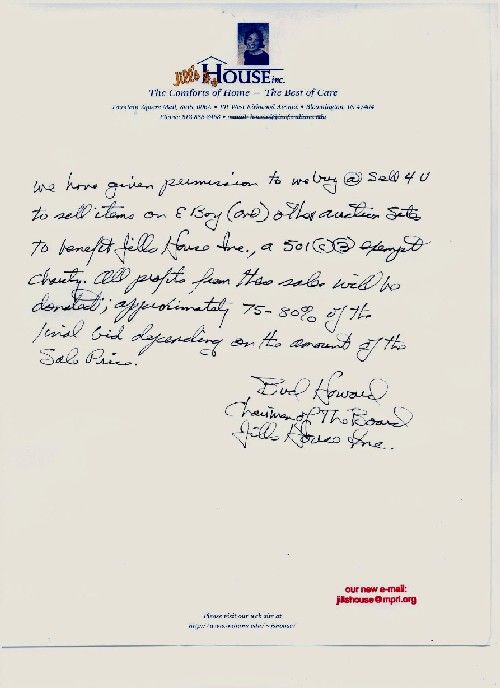 Jill's HOUSE inc.
The Comforts of Home — The Best of Care
Fountain Square Mall, Suite • 101 West Kirkwood Avenue • Bloomington, IN 47404
Phone:
We have given permission to weBuy @ Sell 4 U
to sell items on E Bay (and) other auction sites
to benefit Jills House Inc., a 501(C)(3) exempt
charity. All profits from these sales will be
donated; approximately 75-80% of the
final bid depending on the amount of the
Sale Price.
Bud Howard
Chairman of The Board
Jills House Inc.
our new e-mail:
jillshouse@mpri.org
Please visit our web site at